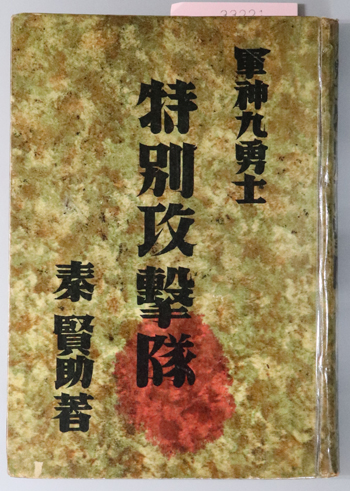 軍神九勇士
特別攻撃隊
秦賢助著